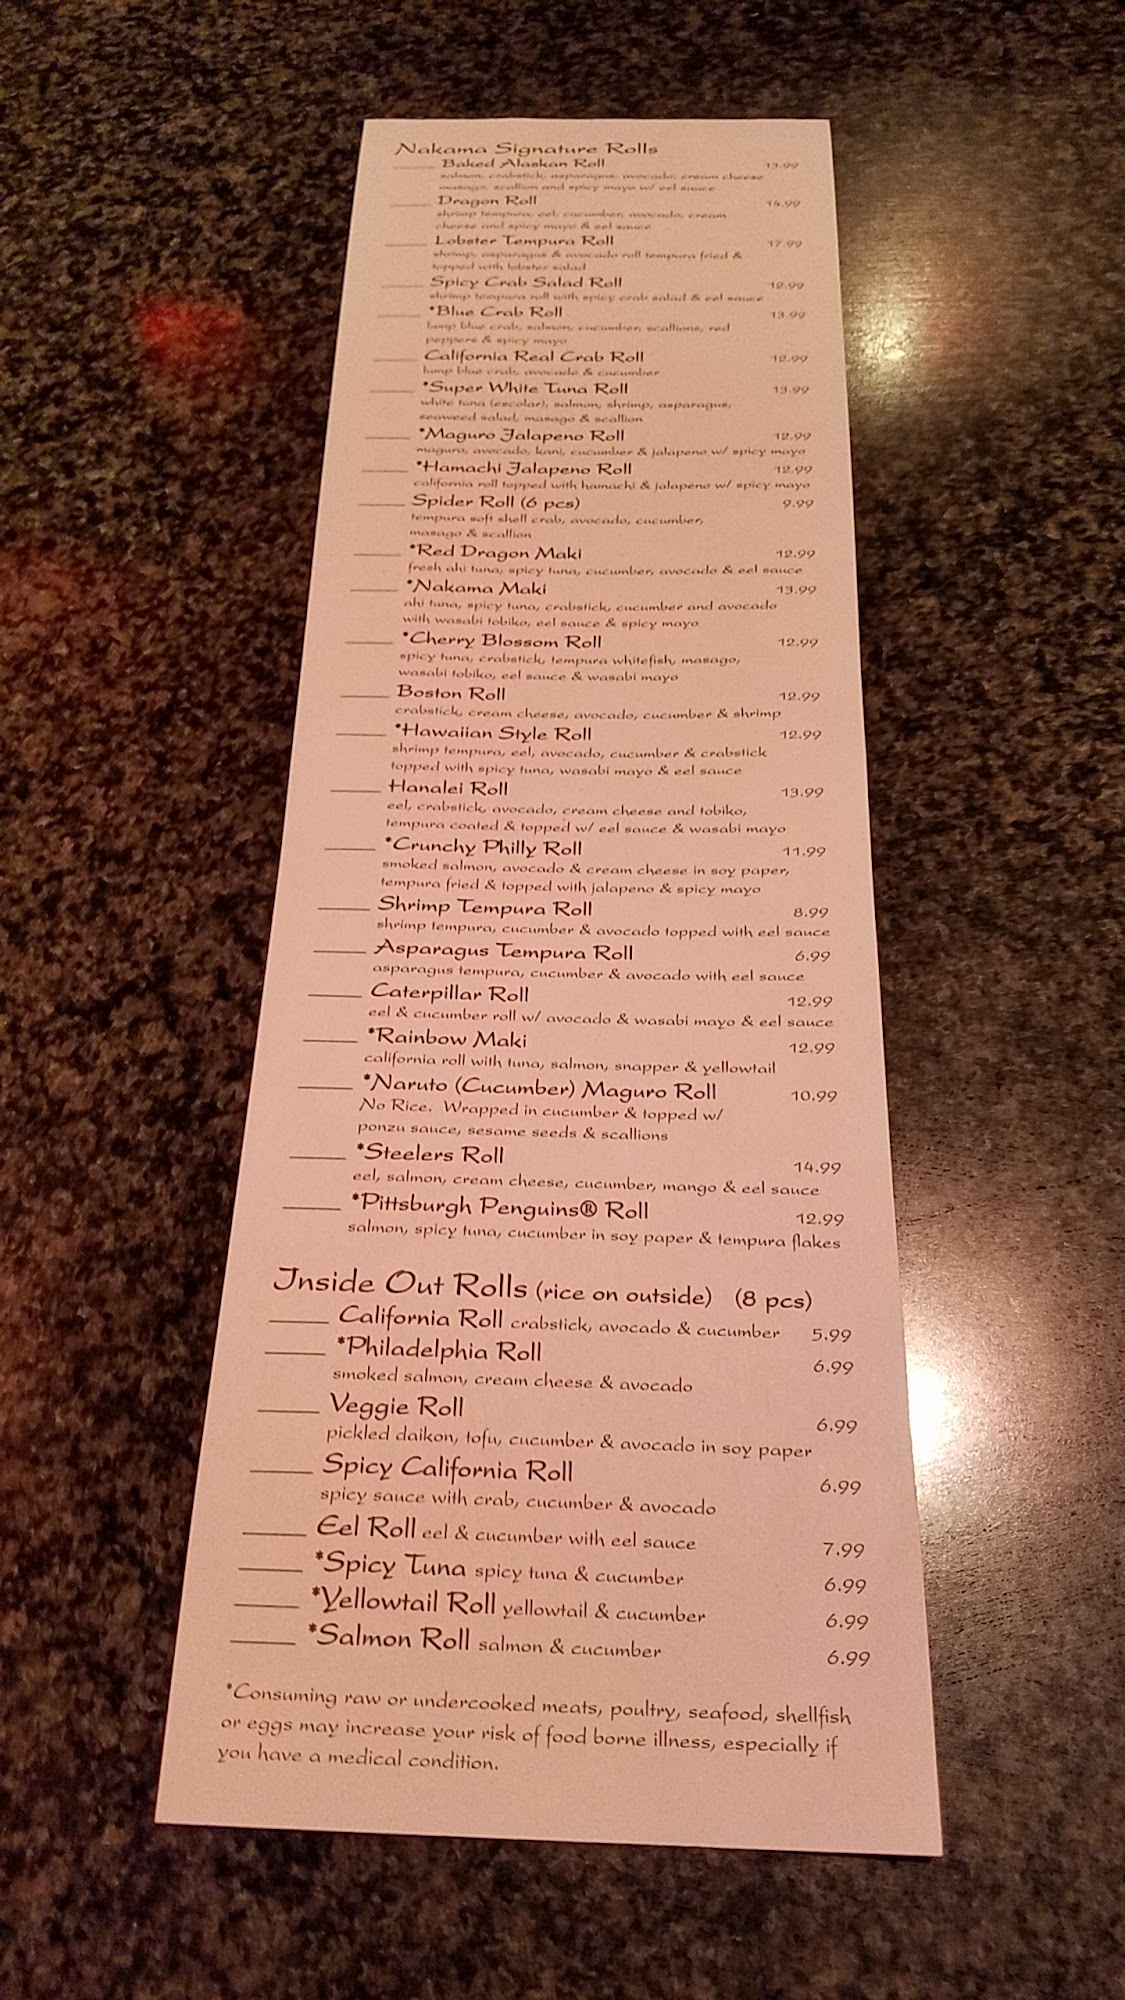 Nakama Signature Rolls
____ Baked Alaskan Roll 13.99
salmon, crabstick, asparagus, avocado, cream cheese
masago, scallion and spicy mayo w/ eel sauce
____ Dragon Roll 14.99
shrimp tempura, eel, cucumber, avocado, cream
cheese and spicy mayo & eel sauce
____ Lobster Tempura Roll 17.99
shrimp, asparagus & avocado roll tempura fried &
topped with lobster salad
____ Spicy Crab Salad Roll 12.99
shrimp tempura roll with spicy crab salad & eel sauce
____ *Blue Crab Roll 13.99
lump blue crab, salmon, cucumber, scallions, red
peppers & spicy mayo
____ California Real Crab Roll 12.99
lump blue crab, avocado & cucumber
____ *Super White Tuna Roll 13.99
white tuna (escolar), salmon, shrimp, asparagus,
seaweed salad, masago & scallion
____ *Maguro Jalapeno Roll 12.99
maguro, avocado, kani, cucumber & jalapeno w/ spicy mayo
____ *Hamachi Jalapeno Roll 12.99
california roll topped with hamachi & jalapeno w/ spicy mayo
____ Spider Roll (6 pcs) 9.99
tempura soft shell crab, avocado, cucumber,
masago & scallion
____ *Red Dragon Maki 12.99
fresh ahi tuna, spicy tuna, cucumber, avocado & eel sauce
____ *Nakama Maki 13.99
ahi tuna, spicy tuna, crabstick, cucumber and avocado
with wasabi tobiko, eel sauce & spicy mayo
____ *Cherry Blossom Roll 12.99
spicy tuna, crabstick, tempura whitefish, masago,
wasabi tobiko, eel sauce & wasabi mayo
____ Boston Roll 12.99
crabstick, cream cheese, avocado, cucumber & shrimp
____ *Hawaiian Style Roll 12.99
shrimp tempura, eel, avocado, cucumber & crabstick
topped with spicy tuna, wasabi mayo & eel sauce
____ Hanalei Roll 13.99
eel, crabstick, avocado, cream cheese and tobiko,
tempura coated & topped w/ eel sauce & wasabi mayo
____ *Crunchy Philly Roll 11.99
smoked salmon, avocado & cream cheese in soy paper,
tempura fried & topped with jalapeno & spicy mayo
____ Shrimp Tempura Roll 8.99
shrimp tempura, cucumber & avocado topped with eel sauce
____ Asparagus Tempura Roll 6.99
asparagus tempura, cucumber & avocado with eel sauce
____ Caterpillar Roll 12.99
eel & cucumber roll w/ avocado & wasabi mayo & eel sauce
____ *Rainbow Maki 12.99
california roll with tuna, salmon, snapper & yellowtail
____ *Naruto (Cucumber) Maguro Roll 10.99
No Rice. Wrapped in cucumber & topped w/
ponzu sauce, sesame seeds & scallions
____ *Steelers Roll 14.99
eel, salmon, cream cheese, cucumber, mango & eel sauce
____ *Pittsburgh Penguins® Roll 12.99
salmon, spicy tuna, cucumber in soy paper & tempura flakes
Inside Out Rolls (rice on outside) (8 pcs)
____ California Roll crabstick, avocado & cucumber 5.99
____ *Philadelphia Roll 6.99
smoked salmon, cream cheese & avocado
____ Veggie Roll 6.99
pickled daikon, tofu, cucumber & avocado in soy paper
____ Spicy California Roll 6.99
spicy sauce with crab, cucumber & avocado
____ Eel Roll eel & cucumber with eel sauce 7.99
____ *Spicy Tuna spicy tuna & cucumber 6.99
____ *Yellowtail Roll yellowtail & cucumber 6.99
____ *Salmon Roll salmon & cucumber 6.99
*Consuming raw or undercooked meats, poultry, seafood, shellfish
or eggs may increase your risk of food borne illness, especially if
you have a medical condition.